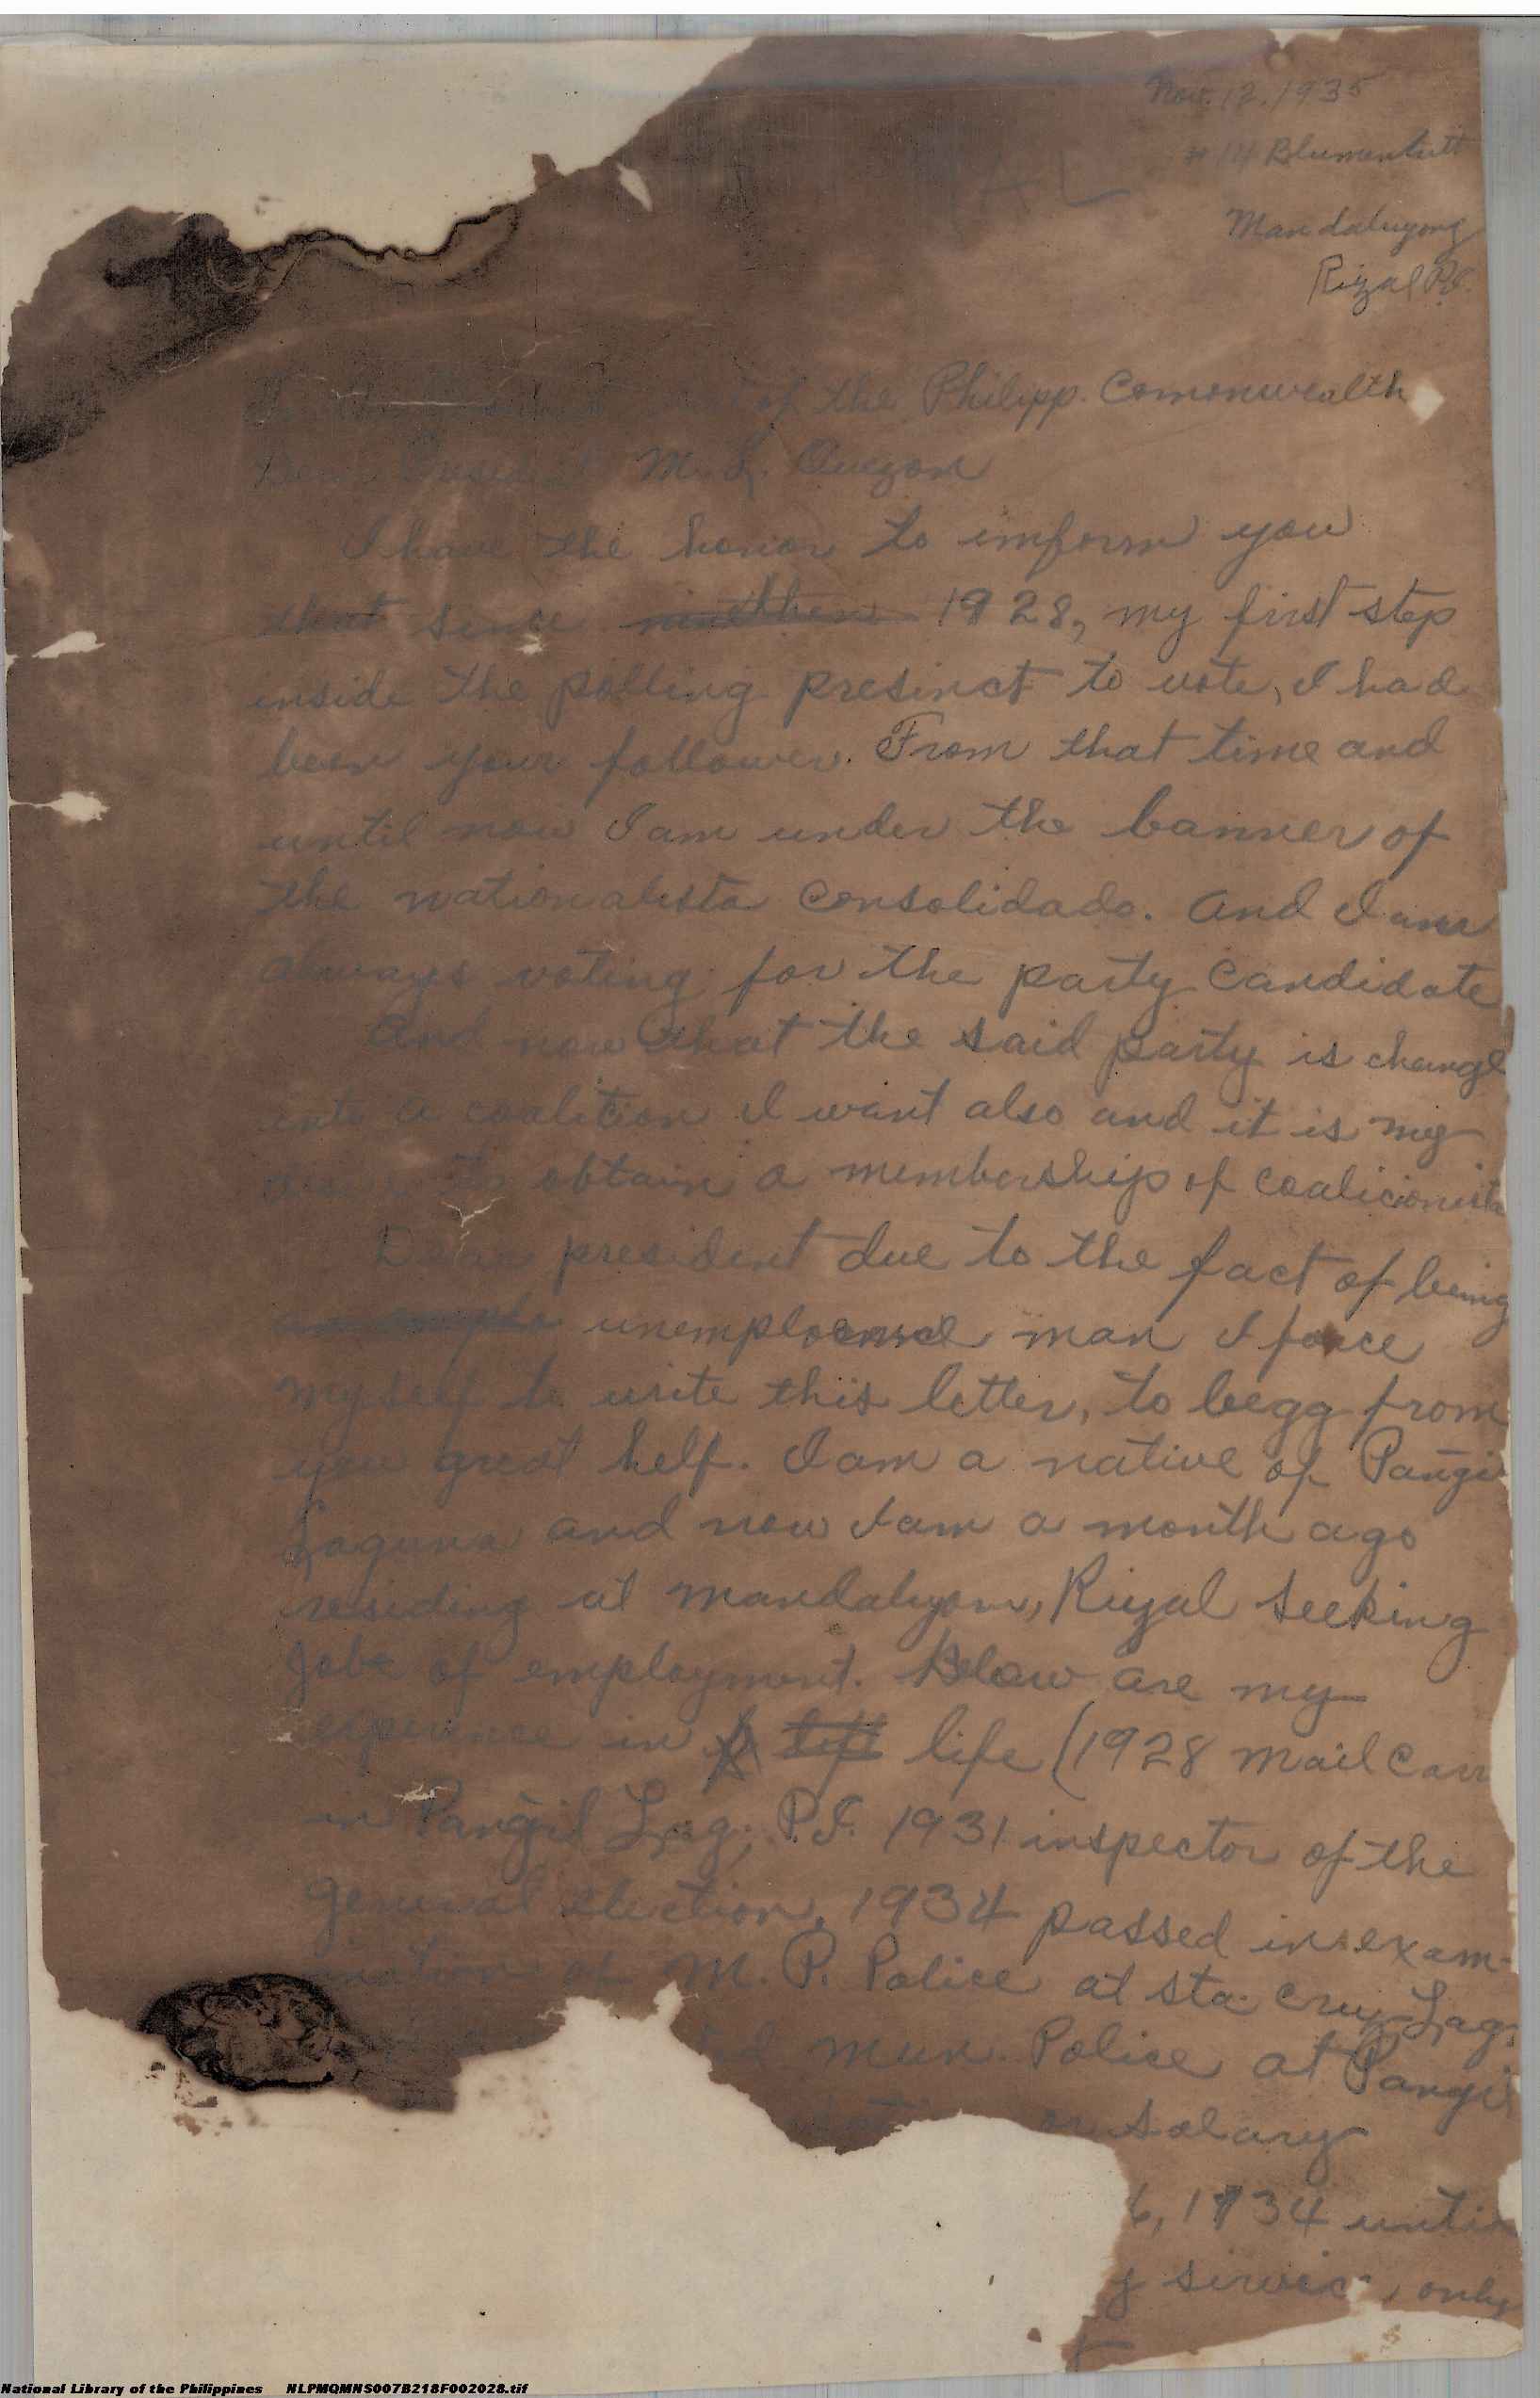 Nov. 12, 1935
# 14 Blumentritt
Mandaluyong
Rizal P.I.
of the Philipp. Comonwealth
Dear President M. L. Quezon
I have the honor to imform you
that since 1928, my first step
inside the polling presinct to vote, I had
been your follower. From that time and
until now I am under the banner of
the nationalista Consolidado. And I am
always voting for the party candidate
And now that the said party is change
into a coalition I want also and it is my
desire to obtain a membership of coalicionista
Dear president due to the fact of being
unemployed man I force
myself to write this letter, to begg from
you great helf. I am a native of Pangil
Laguna and now I am a month ago
residing at Mandaluyon, Rizal seeking
jobe of employment. Below are my
experience in life (1928 Mail Carr
in Pangil Lag; P.I. 1931 inspector of the
General election, 1934 passed in exam-
ination of M. P. Police at Sta. Cruz Lag.
mun. Police at Pangil
salary
6, 1934 until
service, only
National Library of the Philippines NLPMQMNS007B218F002028.tif